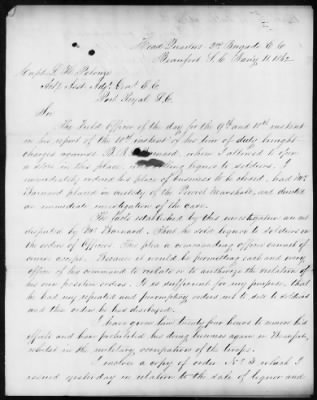 Head Quarters 2nd Brigade E.C.
Beaufort S.C. Jany 11 1862
Capt. L. H. Pelouze
Act'g Asst. Adjt. Genl E.C.
Port Royal S.C.
Sir
The Field Officer of the day for the 9th and 10th instant
in his report of the 10th instant of his tour of duty brought
charges against B. Barnard, whom I allowed to open
a store in this place, for selling liquor to soldiers. I
immediately ordered his place of business to be closed, had Mr
Barnard placed in custody of the Provost Marshall, and directed
an immediate investigation of the case.
The facts established by this investigation are not
disputed by Mr Barnard. That he sold liquor to soldiers on
the orders of Officers. This plea a commanding officer cannot of
course accept. Because it would be permitting each and every
officer of his command to violate or to authorize the violation of
his own positive orders. It is sufficient for my purpose, that
he had my repeated and peremptory orders not to sell to soldiers
and these orders he has disobeyed.
I have given him twenty four hours to remove his
effects and have prohibited his doing business again in Beaufort,
whilst in the military occupation of the troops.
I enclose a copy of order No 3 which I
issued yesterday in relation to the sale of liquor and